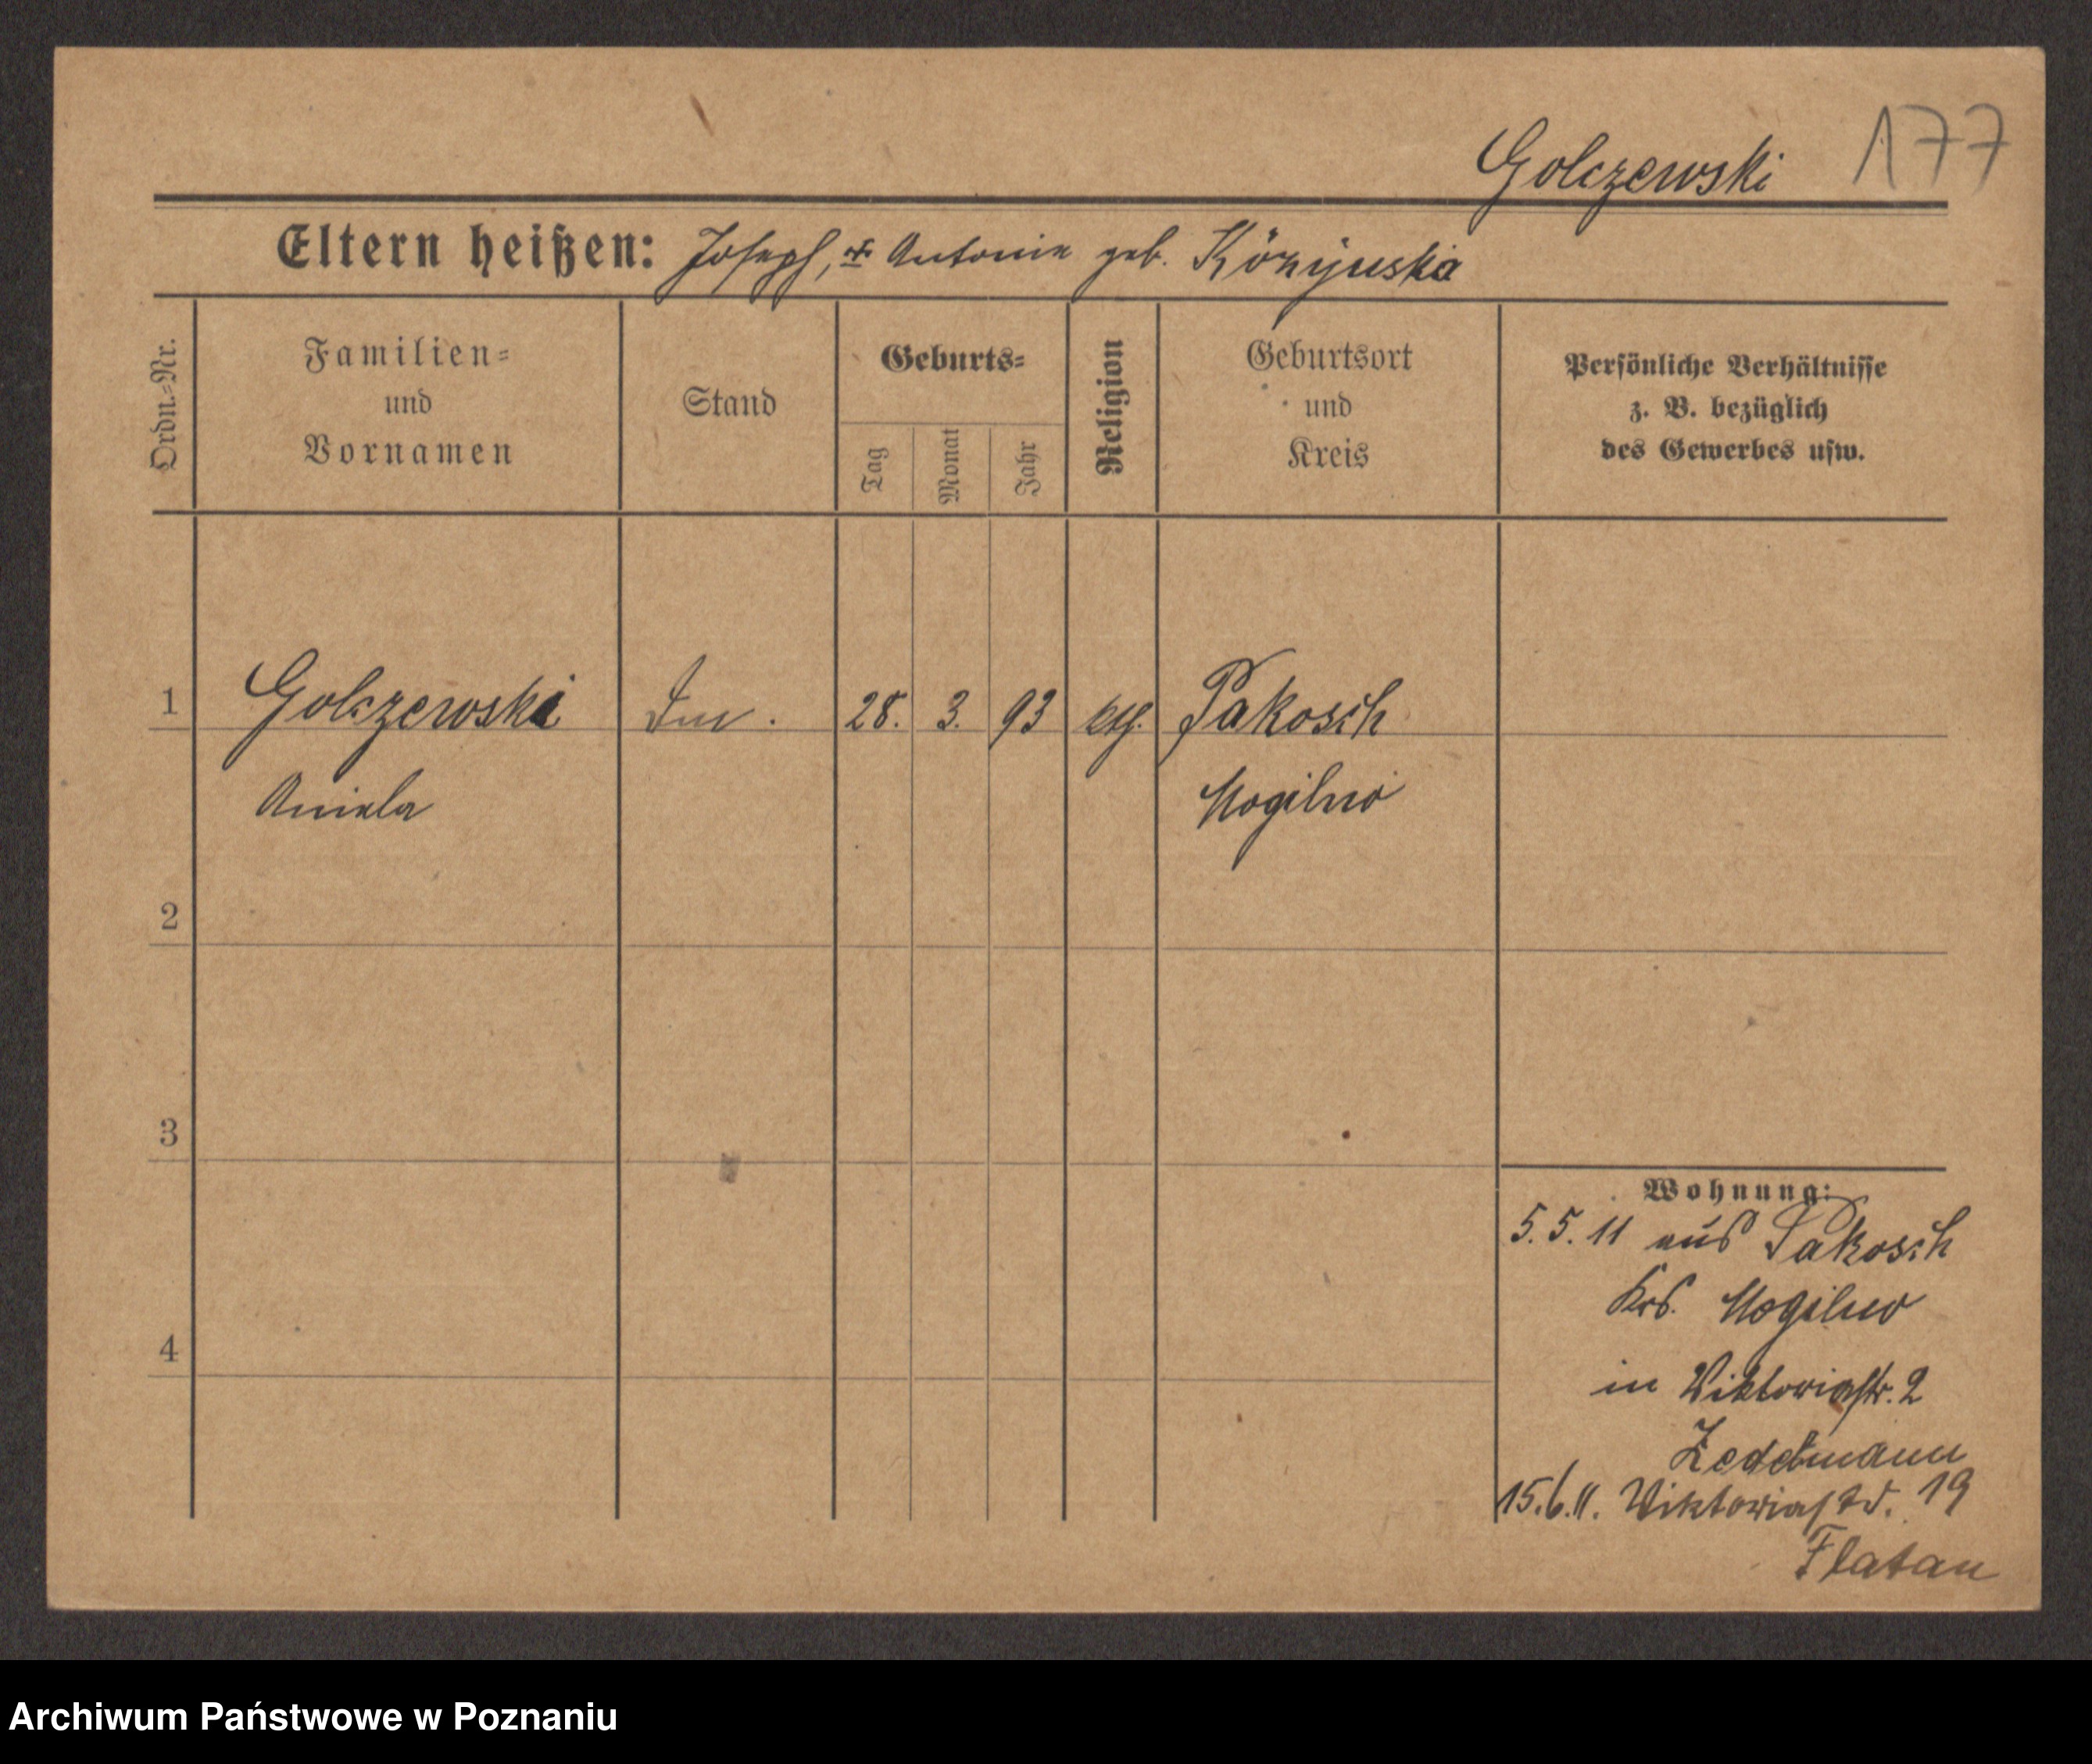 Golczewski 177
Eltern heißen: Joseph, + Antonie geb.
Ordn.=Nr.
Familien=
und
Vornamen
Stand
Geburts=
Tag
Monat
Jahr
Religion
Geburtsort
und
Kreis
Persönliche Verhältnisse
z. B. bezüglich
des Gewerbes usw.
1 Golczewski 28. 3. 93 kth. Pakosch
Aniela Mogilno
2
3
4
Wohnung:
5.5.11 aus Pakosch
Krs. Mogilno
in Viktoriastr. 2
15.6.11. Viktoriastr. 19
Flatau
Archiwum Państwowe w Poznaniu